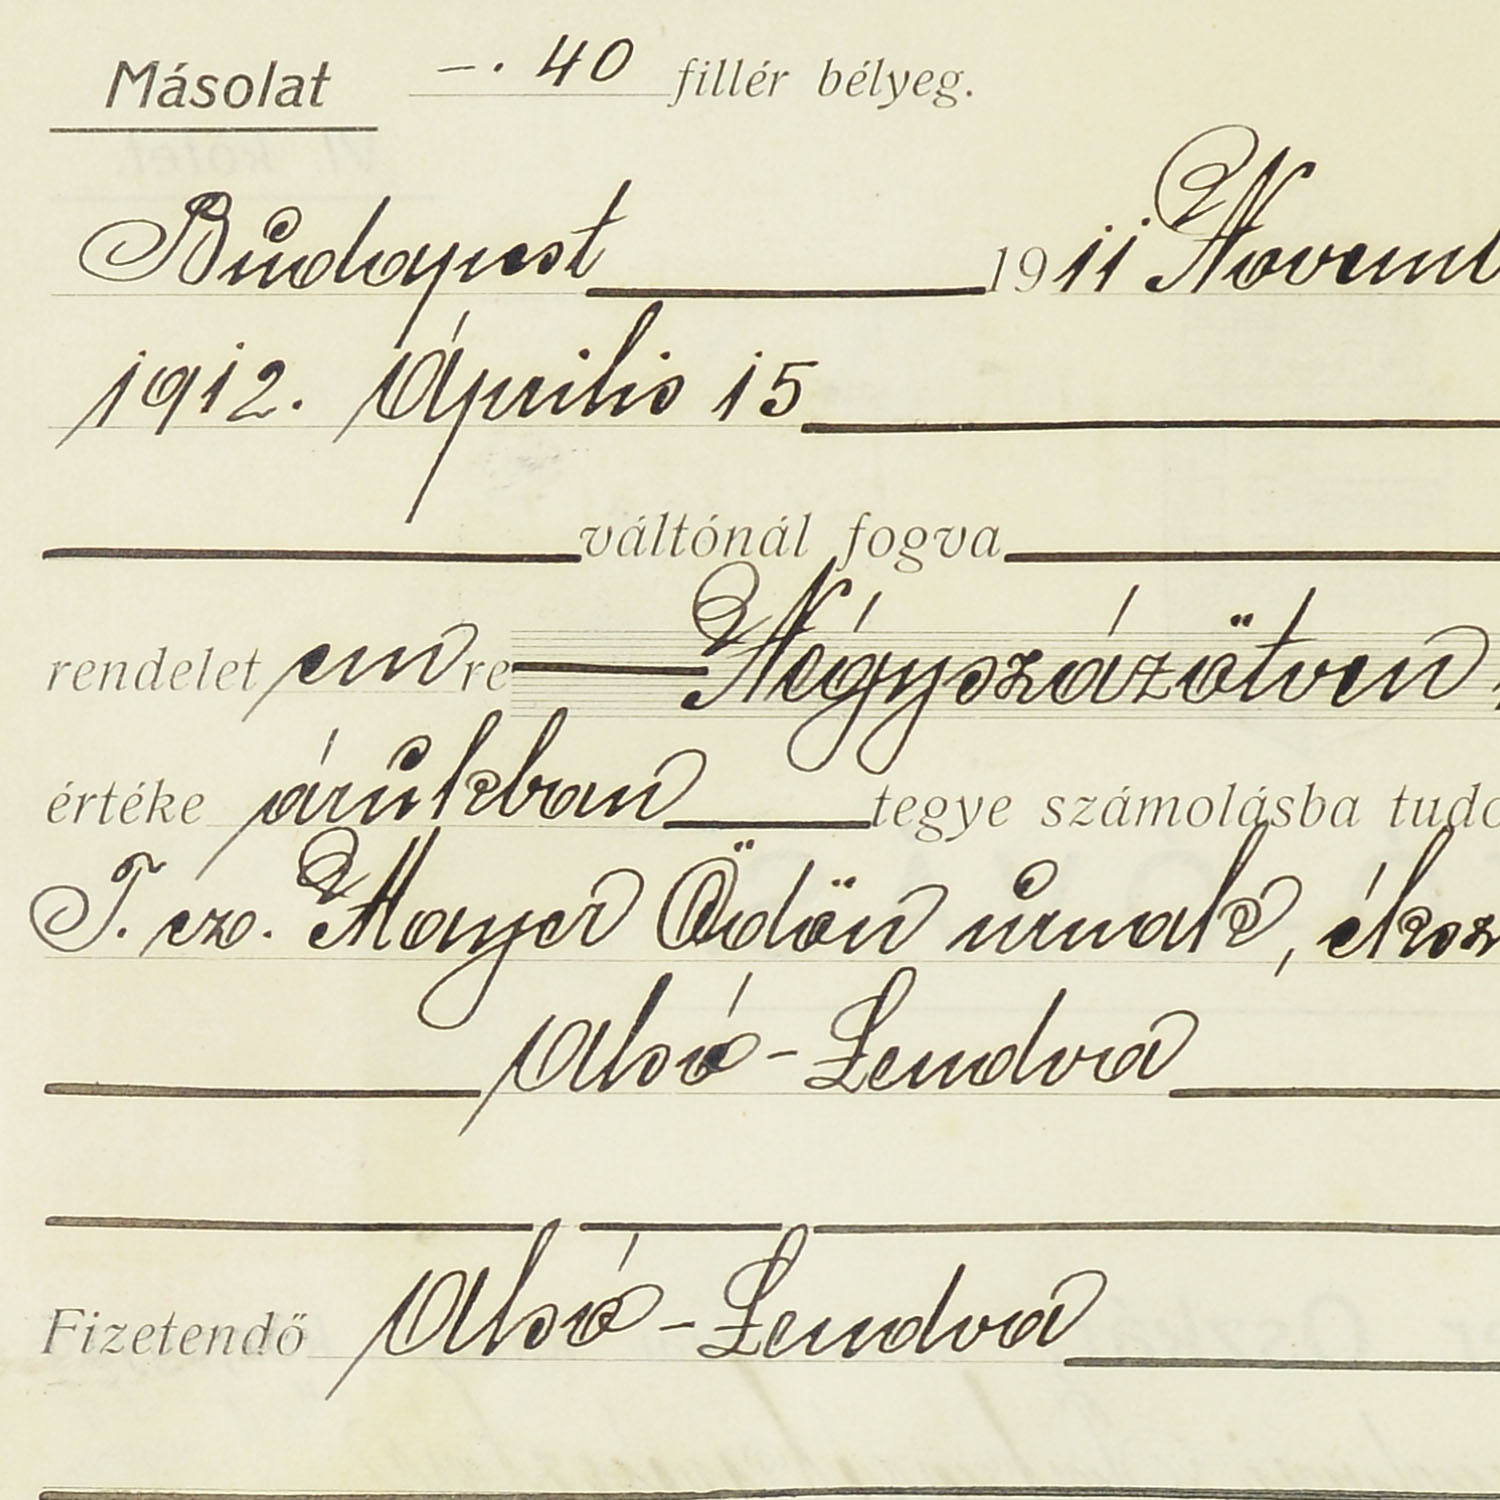 Másolat —. 40 fillér bélyeg.
Budapest 1911 Novemb
1912. Április 15
váltónál fogva
rendelet emre Négyszázötven
értéke árukban tegye számolásba tudo
T. cz. Mayer Ödön úrnak, éksz
Alsó-Lendva
Fizetendő Alsó-Lendva